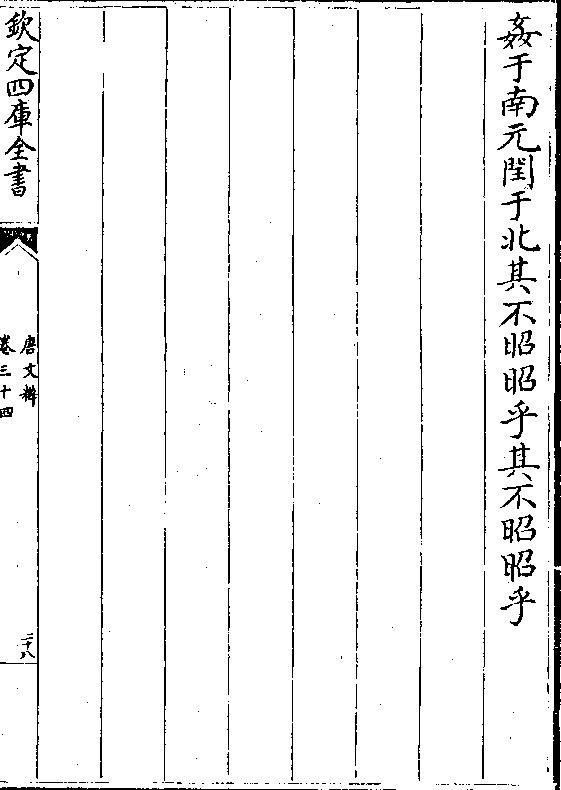 姦于南元閏于北其不昭昭乎其不昭昭乎
欽定四庫全書
唐文粹
卷三十四
三十八